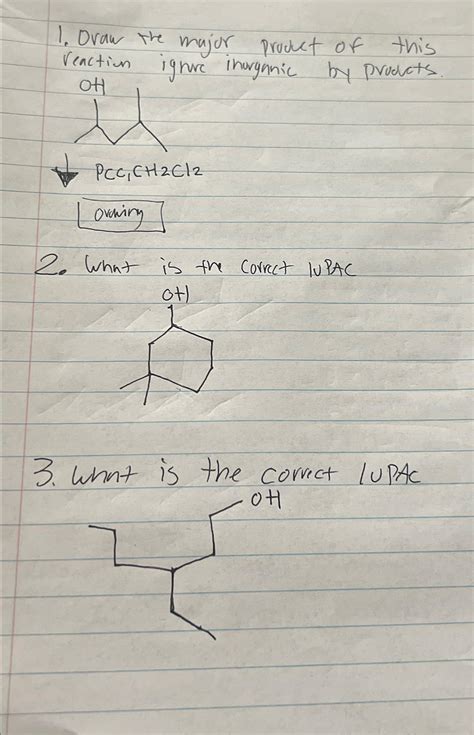 1. Draw the major product of this
reaction ignore inorganic by products.
OH
PCC, CH2Cl2
Drawing
2. What is the correct IUPAC
OH
3. What is the correct IUPAC
OH